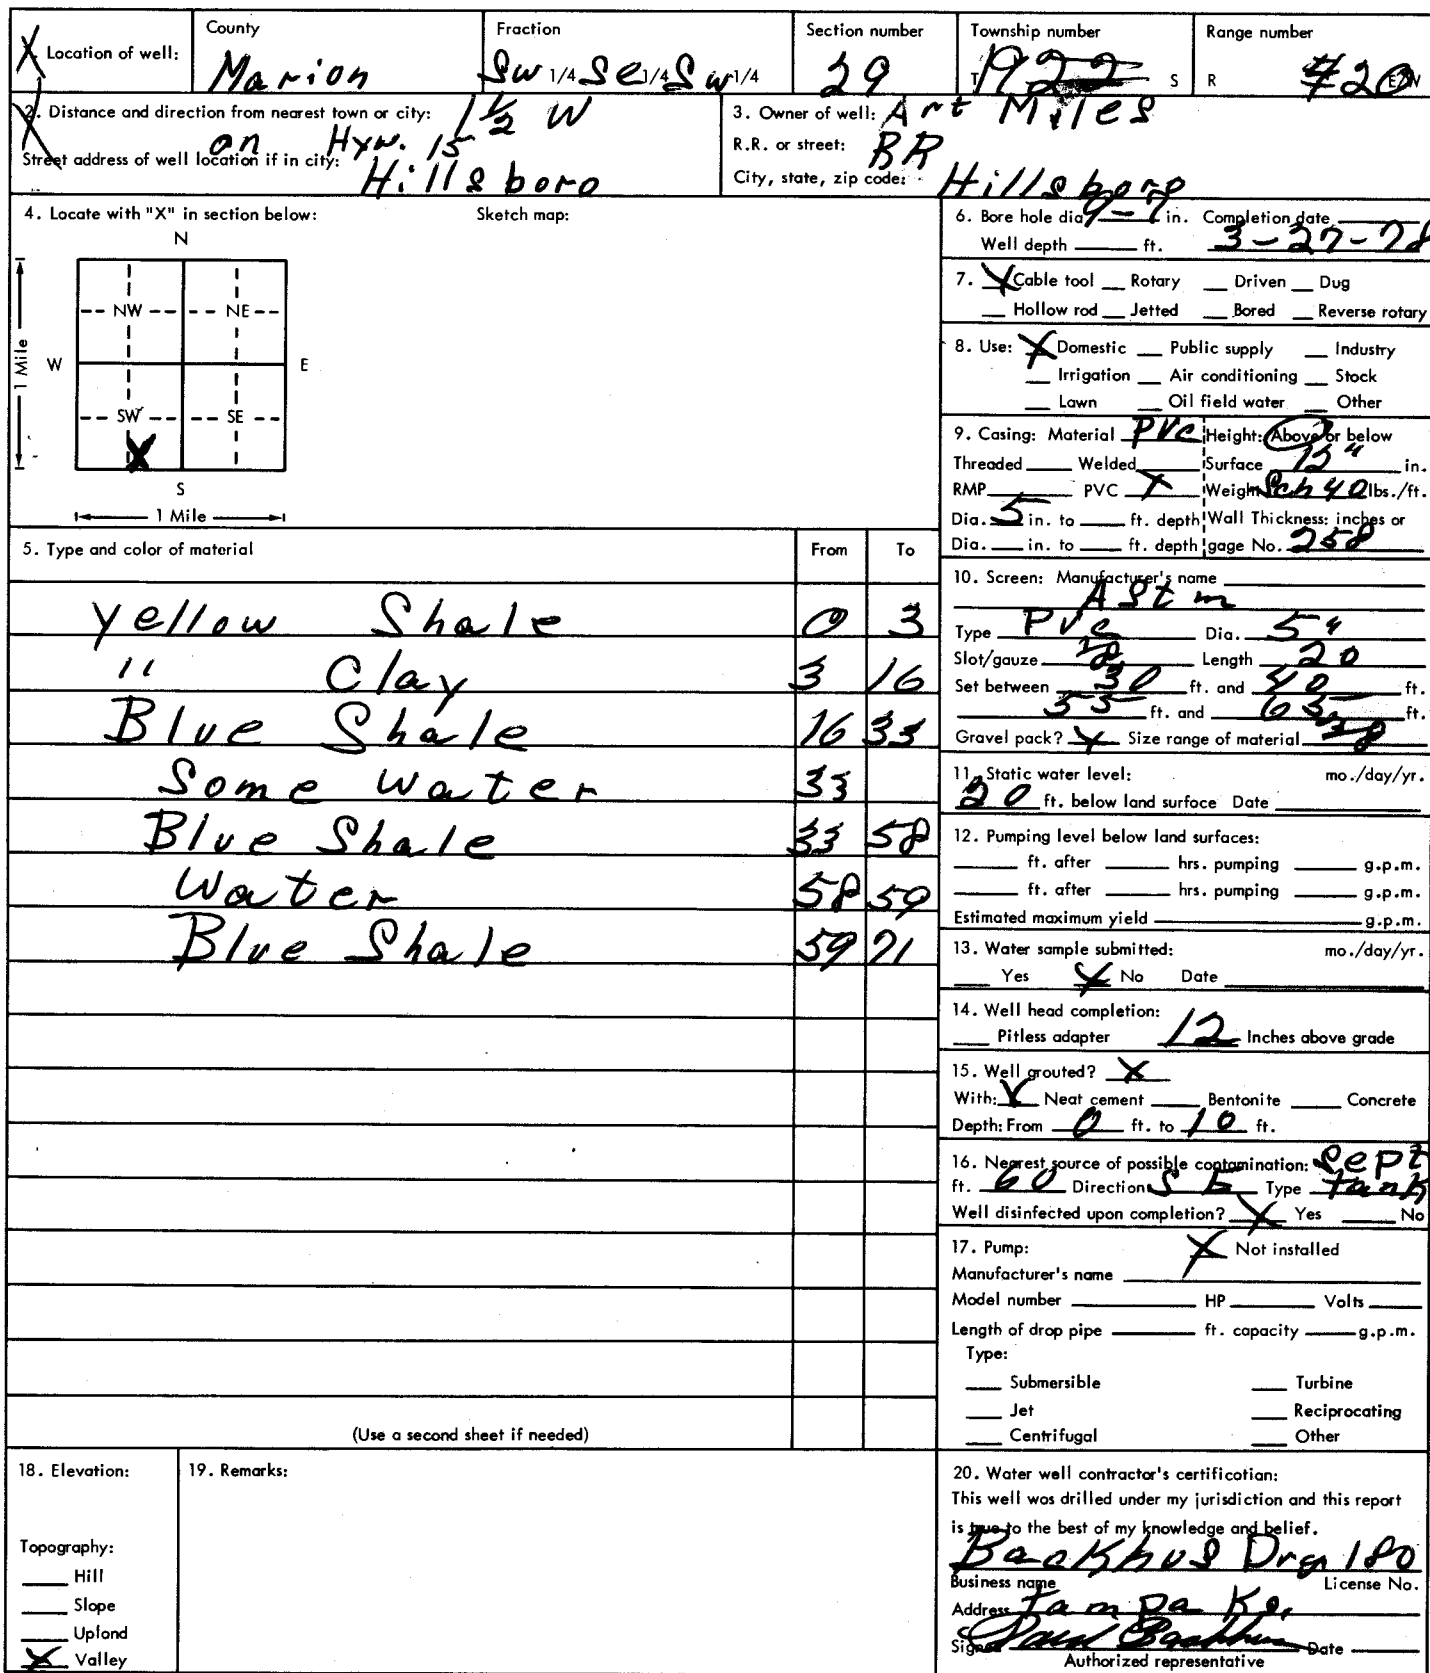 County Fraction Section number Township number Range number
Location of well: Marion Sw 1/4 Se 1/4 Sw 1/4 29 T S R E/W
2. Distance and direction from nearest town or city: 1 1/2 W
on Hyw. 15
Street address of well location if in city: Hillsboro
3. Owner of well: Art Miles
R.R. or street: RR
City, state, zip code: Hillsboro
4. Locate with "X" in section below: Sketch map:
N
NW NE
W E
1 Mile
SW SE
X
S
1 Mile
5. Type and color of material From To
Yellow Shale 0 3
" Clay 3 16
Blue Shale 16 33
Some Water 33
Blue Shale 33 58
Water 58 59
Blue Shale 59 71
(Use a second sheet if needed)
6. Bore hole dia 9-7 in. Completion date
Well depth ft. 3-27-78
7. X Cable tool Rotary Driven Dug
Hollow rod Jetted Bored Reverse rotary
8. Use: X Domestic Public supply Industry
Irrigation Air conditioning Stock
Lawn Oil field water Other
9. Casing: Material PVC Height: Above or below
Threaded Welded Surface 12" in.
RMP PVC X Weight Sch 40 lbs./ft.
Dia. 5 in. to ft. depth Wall Thickness: inches or
Dia. in. to ft. depth gage No. 258
10. Screen: Manufacturer's name
ASTM
Type PVC Dia. 5"
Slot/gauze Length 20
Set between 30 ft. and 40 ft.
55 ft. and 65 ft.
Gravel pack? X Size range of material
11. Static water level: mo./day/yr.
20 ft. below land surface Date
12. Pumping level below land surfaces:
ft. after hrs. pumping g.p.m.
ft. after hrs. pumping g.p.m.
Estimated maximum yield g.p.m.
13. Water sample submitted: mo./day/yr.
Yes X No Date
14. Well head completion:
Pitless adapter 12 Inches above grade
15. Well grouted? X
With: X Neat cement Bentonite Concrete
Depth: From 0 ft. to 10 ft.
16. Nearest source of possible contamination: Sept
ft. 60 Direction S E Type Tank
Well disinfected upon completion? X Yes No
17. Pump: X Not installed
Manufacturer's name
Model number HP Volts
Length of drop pipe ft. capacity g.p.m.
Type:
Submersible Turbine
Jet Reciprocating
Centrifugal Other
18. Elevation:
Topography:
Hill
Slope
Upland
X Valley
19. Remarks:
20. Water well contractor's certification:
This well was drilled under my jurisdiction and this report
is true to the best of my knowledge and belief.
Backhus Drg 180
Business name License No.
Address Tampa Ks.
Signed Backhus Date
Authorized representative